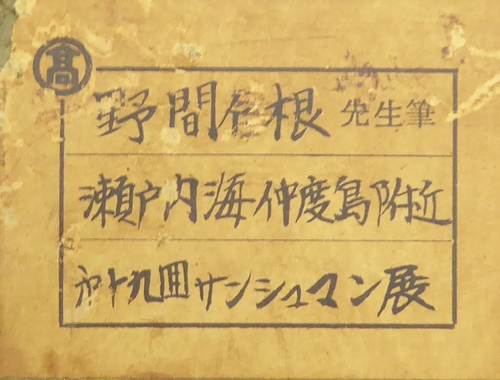 髙
野間仁根 先生筆
瀬戸内海仲度島附近
㐧十九囬サンシュマン展